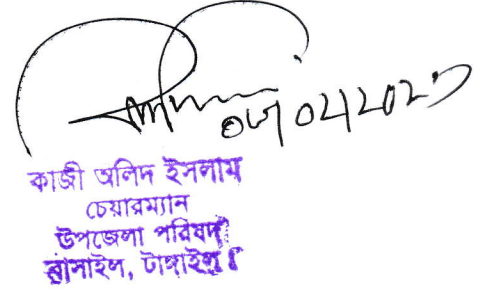 ০৮/০২/২০২৩
কাজী অলিদ ইসলাম
চেয়ারম্যান
উপজেলা পরিষদ
বাসাইল, টাঙ্গাইল।